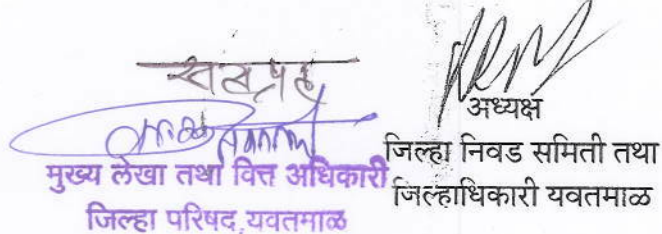 सत्यप्रत
मुख्य लेखा तथा वित्त अधिकारी
जिल्हा परिषद, यवतमाळ
अध्यक्ष
जिल्हा निवड समिती तथा
जिल्हाधिकारी यवतमाळ